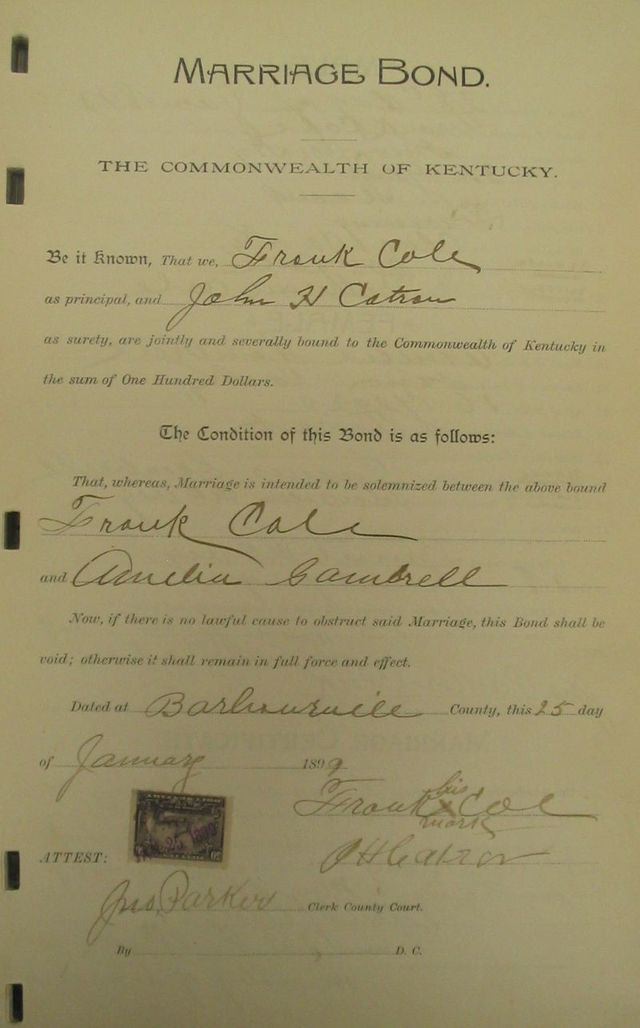 MARRIAGE BOND.
THE COMMONWEALTH OF KENTUCKY.
Be it known, That we, Frank Cole
as principal, and John H Catron
as surety, are jointly and severally bound to the Commonwealth of Kentucky in
the sum of One Hundred Dollars.
The Condition of this Bond is as follows:
That, whereas, Marriage is intended to be solemnized between the above bound
Frank Cole
and Amelia Gambrell
Now, if there is no lawful cause to obstruct said Marriage, this Bond shall be
void; otherwise it shall remain in full force and effect.
Dated at Barbourville County, this 25 day
of January 1899
his
Frank x Cole
mark
ATTEST: Catron
Jno. Parker Clerk County Court.
By D. C.